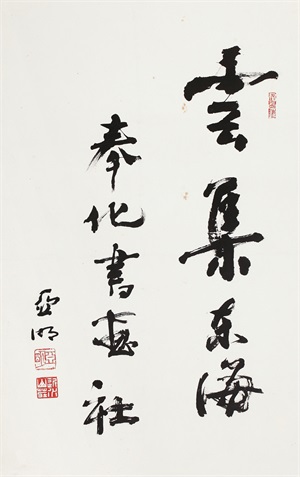 雲集东海
奉化書画社
亚明